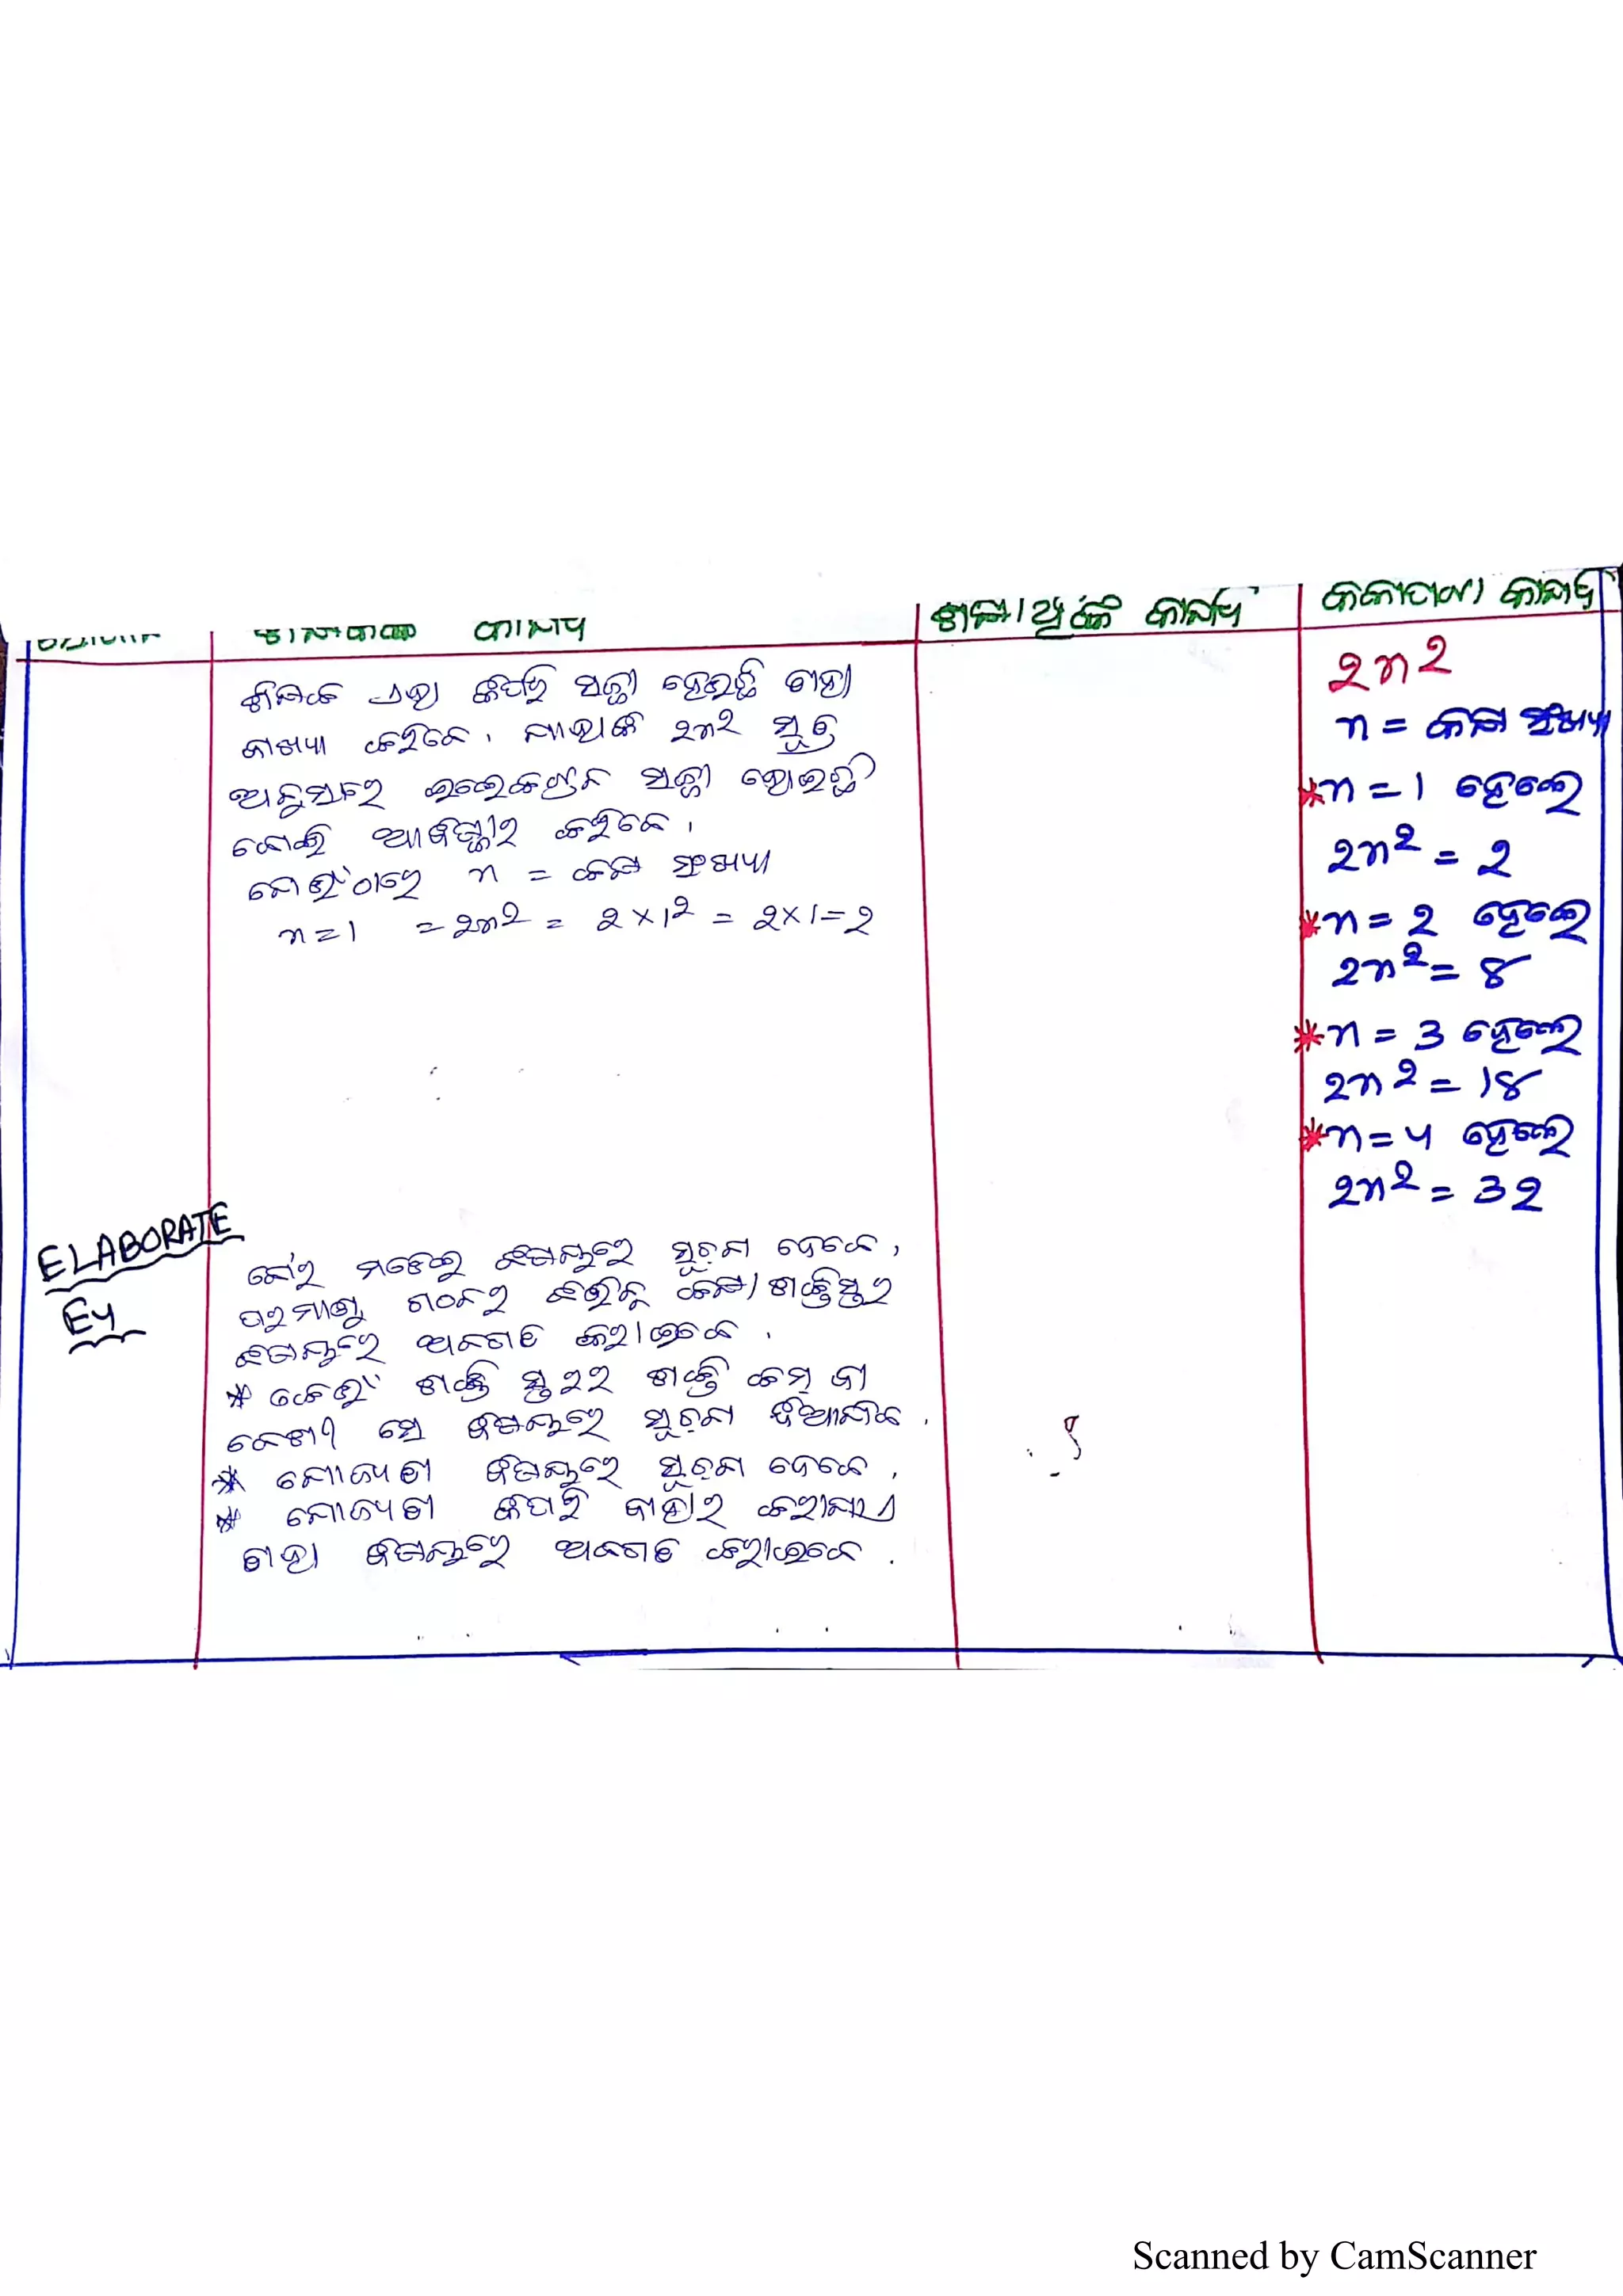 ଶିକ୍ଷାର୍ଥୀଙ୍କ କାର୍ଯ୍ୟ
କଳାପଟା କାର୍ଯ୍ୟ
ଶିକ୍ଷକ ଏହା କିପରି ସଜ୍ଜା ହେଉଛି ତାହା
ବ୍ୟାଖ୍ୟା କରିବେ । ଯାହାକି 2n2 ସୂତ୍ର
ଅନୁସାରେ ଇଲେକଟ୍ରନ ସଜ୍ଜା ହୋଇଛି
ବୋଲି ଆବିଷ୍କାର କରିବେ ।
ଯେଉଁଠାରେ n = କକ୍ଷ ସଂଖ୍ୟା
n = 1 = 2n2 = 2 × 1² = 2 × 1 = 2
2n2
n = କକ୍ଷ ସଂଖ୍ୟା
*n = 1 ହେଲେ
2n² = 2
*n = 2 ହେଲେ
2n² = ୪
*n = 3 ହେଲେ
2n² = 1୪
*n = 4 ହେଲେ
2n² = 32
ELABORATE
E4
ବୋର ମଡେଲ ବିଷୟରେ ସୂଚନା ଦେବେ ,
ପରମାଣୁ ଗଠନର ବିଭିନ୍ନ କକ୍ଷ / ଶକ୍ତିସ୍ତର
ବିଷୟରେ ଅବଗତ କରାଇବେ .
* କେଉଁ ଶକ୍ତି ସ୍ତରର ଶକ୍ତି କମ୍ ବା
ବେଶୀ ସେ ବିଷୟରେ ସୂଚନା ଦିଆଯିବ .
* ଯୋଜ୍ୟତା ବିଷୟରେ ସୂଚନା ଦେବେ ,
* ଯୋଜ୍ୟତା କିପରି ବାହାର କରାଯାଏ
ତାହା ବିଷୟରେ ଅବଗତ କରାଇବେ .
Scanned by CamScanner